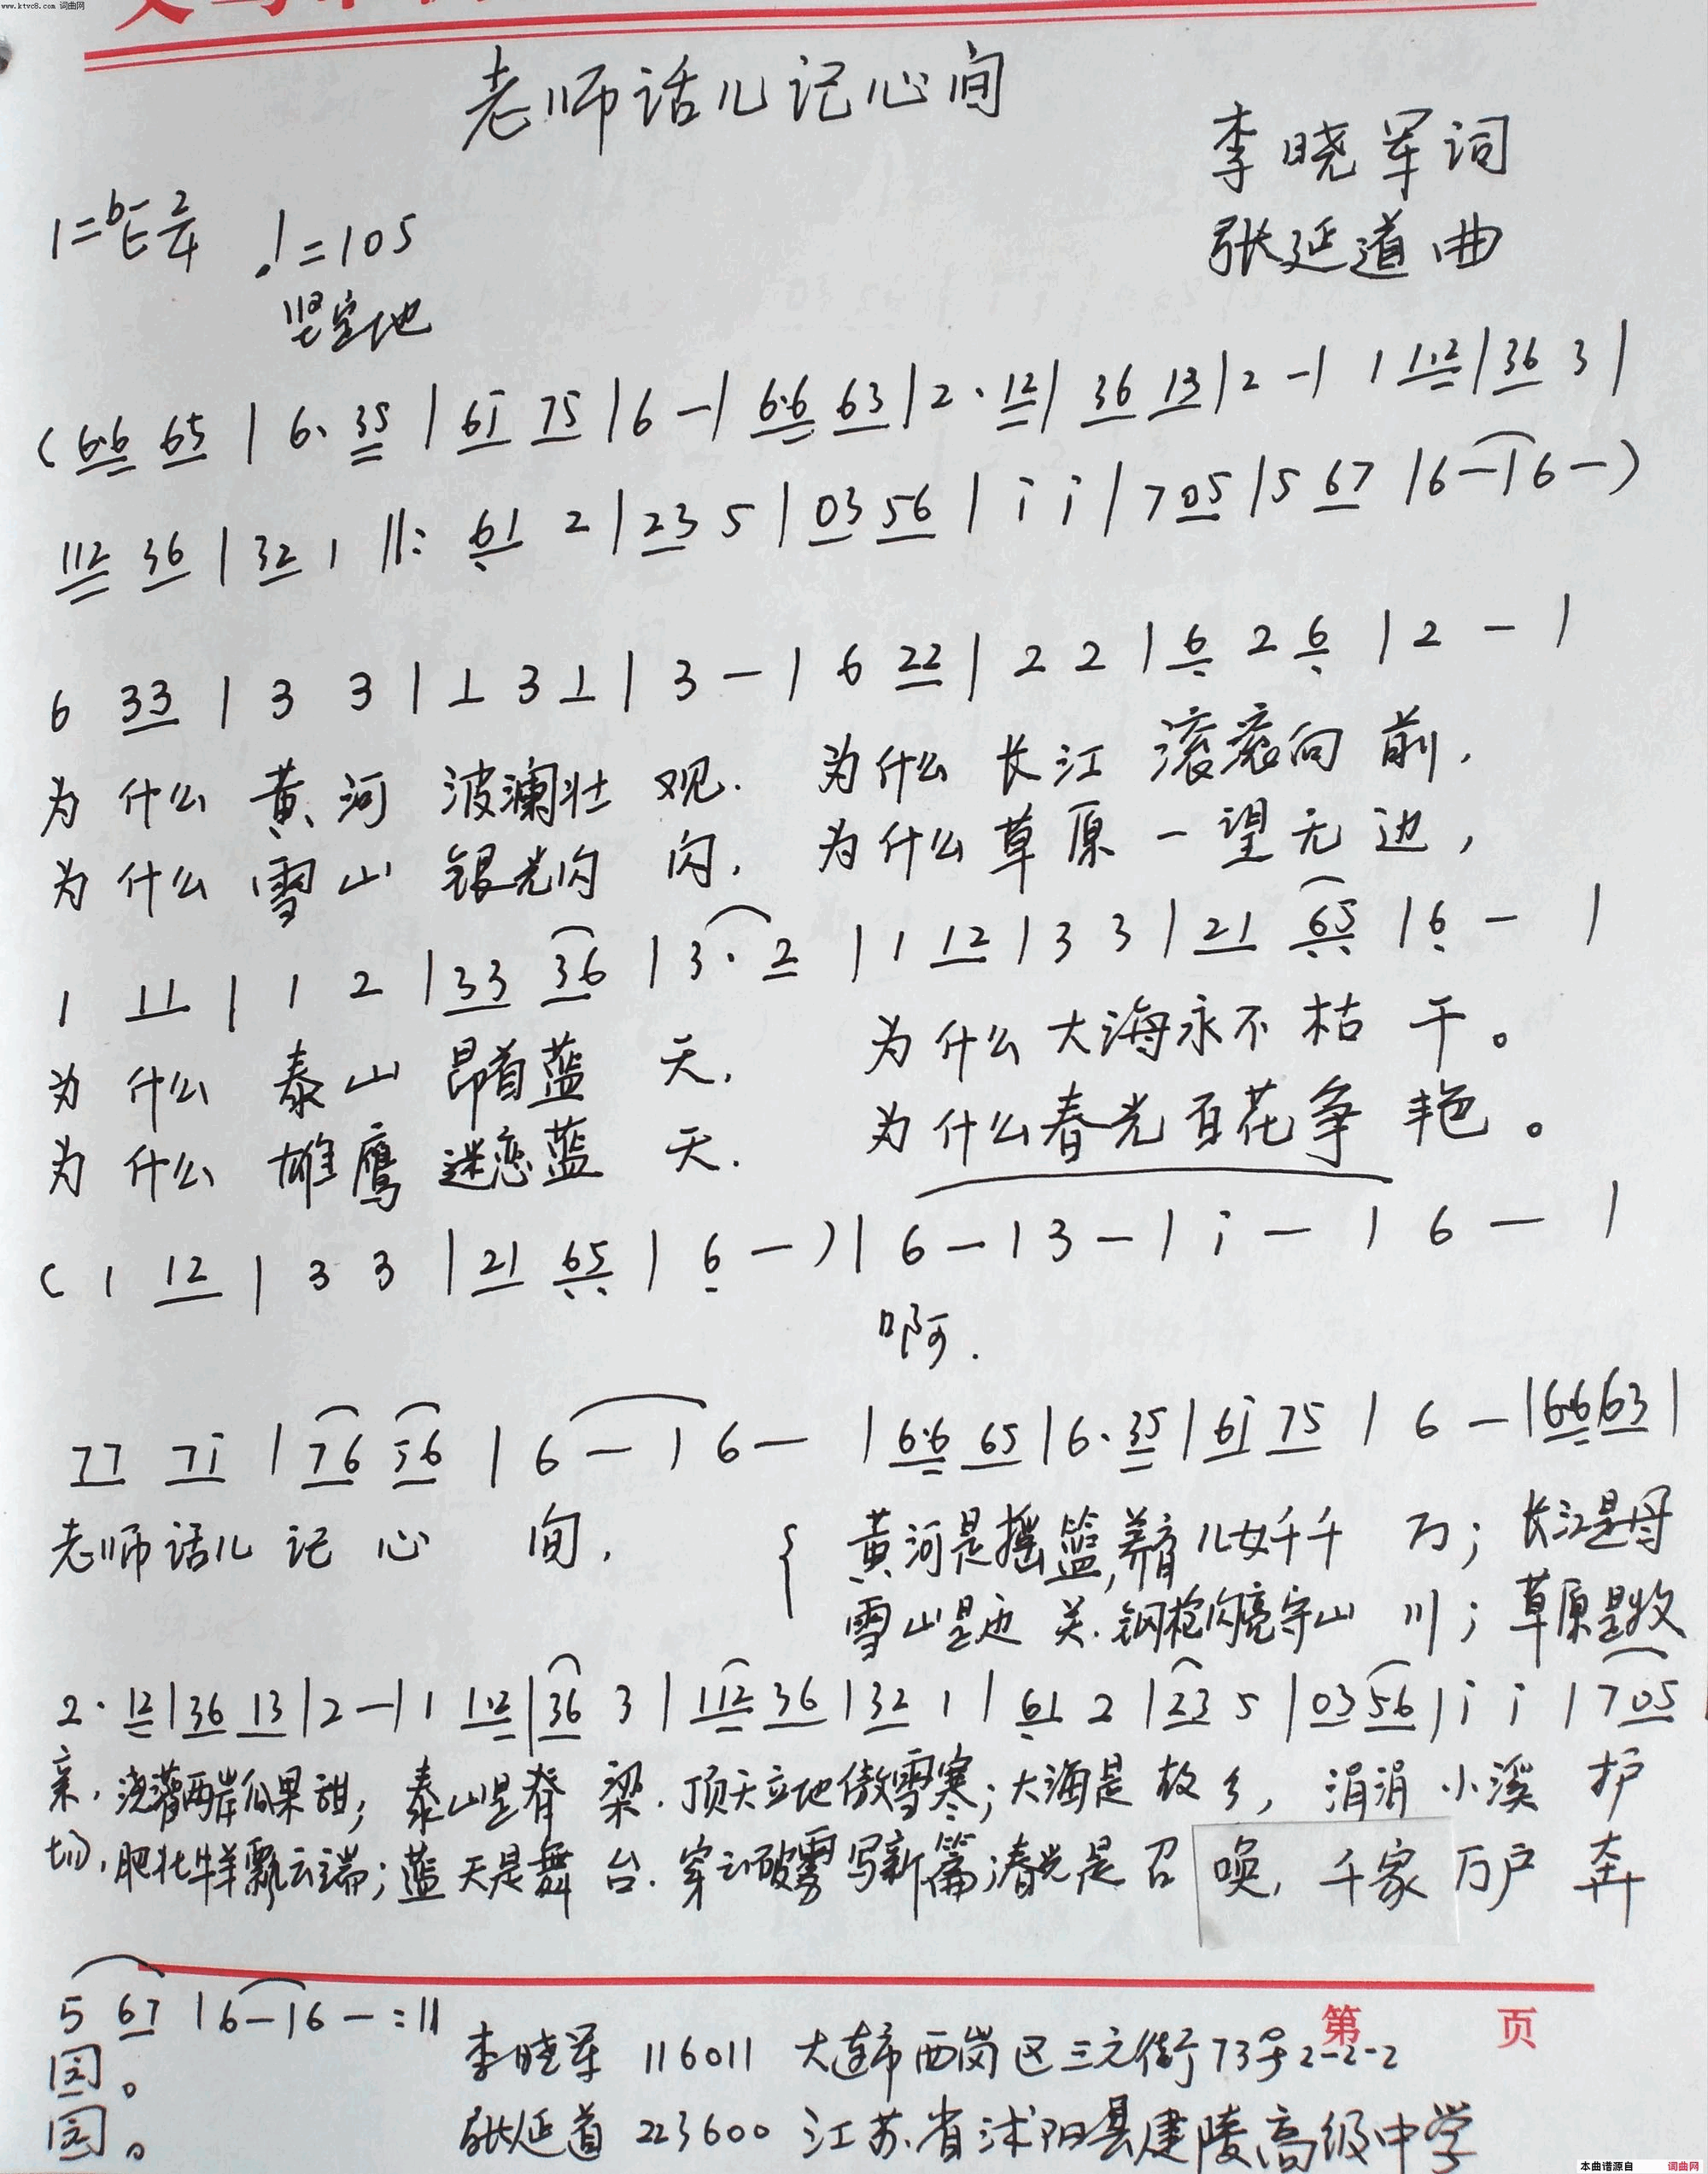 www.ktvc8.com 词曲网
老师话儿记心间
李晓军词
1=bE 2/4 ♩=105
张延道曲
坚定地
(6·6 65 | 6· 35 | 6i 75 | 6 - | 6·6 63 | 2· 12 | 36 13 | 2 - | 1 1·2 | 36 3 |
112 36 | 32 1 ‖: 61 2 | 23 5 | 03 56 | i i | 7 05 | 5 67 | 6 - | 6 - )
6 33 | 3 3 | 1 3 1 | 3 - | 6 22 | 2 2 | 6 2 6 | 2 - |
为什么黄河波澜壮观. 为什么长江滚滚向前,
为什么雪山银光闪闪, 为什么草原一望无边,
1 11 | 1 2 | 33 36 | 3· 2 | 1 12 | 3 3 | 21 65 | 6 - |
为什么泰山昂首蓝天, 为什么大海永不枯干。
为什么雄鹰迷恋蓝天. 为什么春光百花争艳。
( 1 12 | 3 3 | 21 65 | 6 - ) | 6 - | 3 - | i - | 6 - |
啊.
77 7i | 76 56 | 6 - | 6 - | 6·6 65 | 6· 35 | 6i 75 | 6 - | 6·6 63 |
老师话儿记心间, { 黄河是摇篮,养育儿女千千万; 长江是母
雪山是边关.钢枪闪亮守山川; 草原是牧
2· 12 | 36 13 | 2 - | 1 1·2 | 36 3 | 112 36 | 32 1 | 61 2 | 23 5 | 03 56 | i i | 7 05
亲, 浇灌两岸瓜果甜; 泰山是脊梁. 顶天立地傲雪寒; 大海是故乡, 涓涓小溪护
场, 肥壮牛羊飘云端; 蓝天是舞台. 穿云破雾写新篇; 春光是召唤, 千家万户奔
5 67 | 6 - | 6 - :‖
园。
园。
第 页
李晓军 116011 大连市西岗区三元街73号2-2-2
张延道 223600 江苏省沭阳县建陵高级中学
本曲谱源自 词曲网